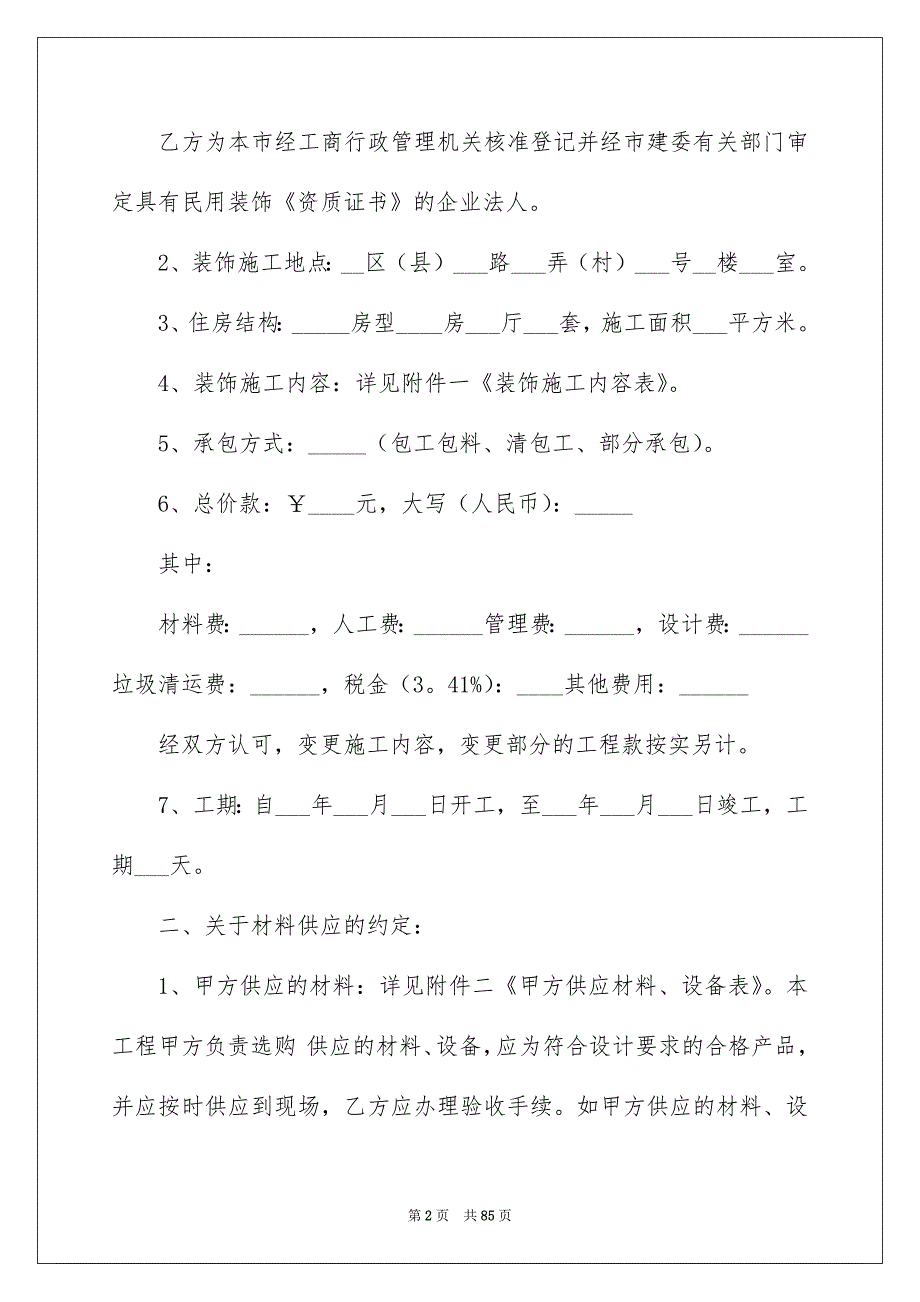 乙方为本市经工商行政管理机关核准登记并经市建委有关部门审
定具有民用装饰《资质证书》的企业法人。
2、装饰施工地点：__区（县）___路___弄（村）___号__楼___室。
3、住房结构：_____房型____房___厅___套，施工面积___平方米。
4、装饰施工内容：详见附件一《装饰施工内容表》。
5、承包方式：_____（包工包料、清包工、部分承包）。
6、总价款：￥____元，大写（人民币）：_____
其中：
材料费：______，人工费：______管理费：______，设计费：______
垃圾清运费：______，税金（3。41%）：____其他费用：______
经双方认可，变更施工内容，变更部分的工程款按实另计。
7、工期：自___年___月___日开工，至___年___月___日竣工，工
期___天。
二、关于材料供应的约定：
1、甲方供应的材料：详见附件二《甲方供应材料、设备表》。本
工程甲方负责选购 供应的材料、设备，应为符合设计要求的合格产品，
并应按时供应到现场，乙方应办理验收手续。如甲方供应的材料、设
第 2 页 共 85 页